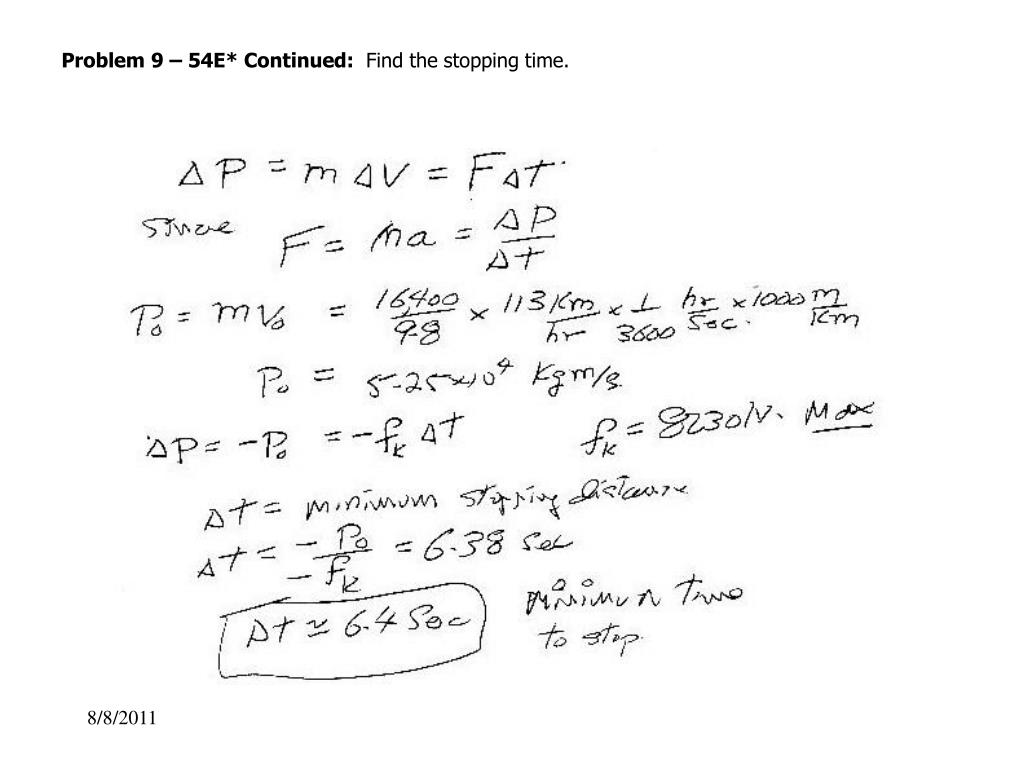 Problem 9 – 54E* Continued: Find the stopping time.
ΔP = m ΔV = FΔt
Since F = ma = ΔP/Δt
P₀ = mV₀ = 16400/9.8 x 113 Km/hr x 1/3600 hr/Sec. x 1000 m/Km
P₀ = 5.25x10⁴ Kgm/s
ΔP = -P₀ = -fₖ Δt fₖ = 8230N. Max
Δt = minimum stopping distance
Δt = -P₀/-fₖ = 6.38 Sec
Δt ≃ 6.4 Sec minimum time
to stop.
8/8/2011